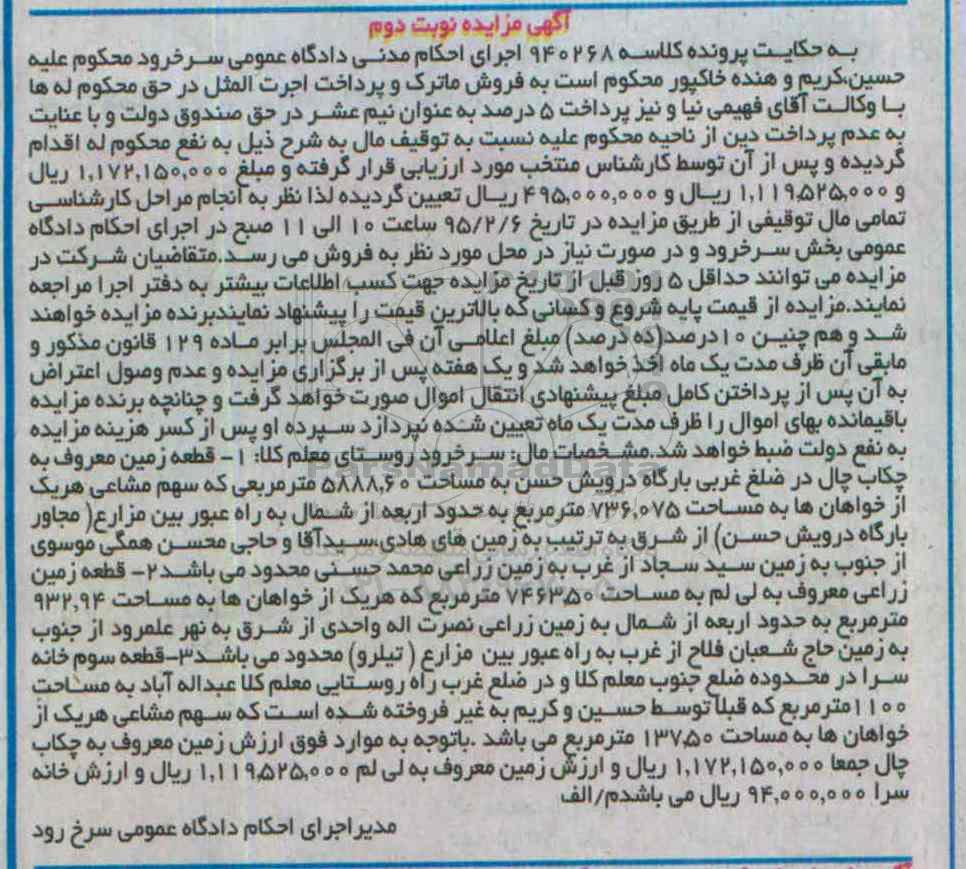 آگهی مزایده نوبت دوم
به حکایت پرونده کلاسه ۹۴۰۲۶۸ اجرای احکام مدنی دادگاه عمومی سرخرود محکوم علیه
حسین،کریم و هنده خاکپور محکوم است به فروش ماترک و پرداخت اجرت المثل در حق محکوم له ها
با وکالت آقای فهیمی نیا و نیز پرداخت ۵ درصد به عنوان نیم عشر در حق صندوق دولت و با عنایت
به عدم پرداخت دین از ناحیه محکوم علیه نسبت به توقیف مال به شرح ذیل به نفع محکوم له اقدام
گردیده و پس از آن توسط کارشناس منتخب مورد ارزیابی قرار گرفته و مبلغ ۱,۱۷۲,۱۵۰,۰۰۰ ریال
و ۱,۱۱۹,۵۲۵,۰۰۰ ریال و ۴۹۵,۰۰۰,۰۰۰ ریال تعیین گردیده لذا نظر به انجام مراحل کارشناسی
تمامی مال توقیفی از طریق مزایده در تاریخ ۹۵/۲/۶ ساعت ۱۰ الی ۱۱ صبح در اجرای احکام دادگاه
عمومی بخش سرخرود و در صورت نیاز در محل مورد نظر به فروش می رسد.متقاضیان شرکت در
مزایده می توانند حداقل ۵ روز قبل از تاریخ مزایده جهت کسب اطلاعات بیشتر به دفتر اجرا مراجعه
نمایند.مزایده از قیمت پایه شروع و کسانی که بالاترین قیمت را پیشنهاد نمایندبرنده مزایده خواهند
شد و هم چنین ۱۰درصد(ده درصد) مبلغ اعلامی آن فی المجلس برابر ماده ۱۲۹ قانون مذکور و
مابقی آن ظرف مدت یک ماه اخذ خواهد شد و یک هفته پس از برگزاری مزایده و عدم وصول اعتراض
به آن پس از پرداختن کامل مبلغ پیشنهادی انتقال اموال صورت خواهد گرفت و چنانچه برنده مزایده
باقیمانده بهای اموال را ظرف مدت یک ماه تعیین شده نپردازد سپرده او پس از کسر هزینه مزایده
به نفع دولت ضبط خواهد شد.مشخصات مال: سرخرود روستای معلم کلا: ۱- قطعه زمین معروف به
چکاب چال در ضلع غربی بارگاه درویش حسن به مساحت ۵۸۸۸,۶۰ مترمربعی که سهم مشاعی هریک
از خواهان ها به مساحت ۷۳۶,۰۷۵ مترمربع به حدود اربعه از شمال به راه عبور بین مزارع( مجاور
بارگاه درویش حسن) از شرق به ترتیب به زمین های هادی،سیدآقا و حاجی محسن همگی موسوی
از جنوب به زمین سید سجاد از غرب به زمین زراعی محمد حسنی محدود می باشد۲- قطعه زمین
زراعی معروف به لی لم به مساحت ۷۴۶۳,۵۰ مترمربع که هریک از خواهان ها به مساحت ۹۳۲,۹۴
مترمربع به حدود اربعه از شمال به زمین زراعی نصرت اله واحدی از شرق به نهر علمرود از جنوب
به زمین حاج شعبان فلاح از غرب به راه عبور بین مزارع ( تیلرو) محدود می باشد۳-قطعه سوم خانه
سرا در محدوده ضلع جنوب معلم کلا و در ضلع غرب راه روستایی معلم کلا عبداله آباد به مساحت
۱۱۰۰مترمربع که قبلاً توسط حسین و کریم به غیر فروخته شده است که سهم مشاعی هریک از
خواهان ها به مساحت ۱۳۷,۵۰ مترمربع می باشد .باتوجه به موارد فوق ارزش زمین معروف به چکاب
چال جمعا ۱,۱۷۲,۱۵۰,۰۰۰ ریال و ارزش زمین معروف به لی لم ۱,۱۱۹,۵۲۵,۰۰۰ ریال و ارزش خانه
سرا ۹۴,۰۰۰,۰۰۰ ریال می باشدم/الف
مدیر اجرای احکام دادگاه عمومی سرخ رود
ParsNamadData